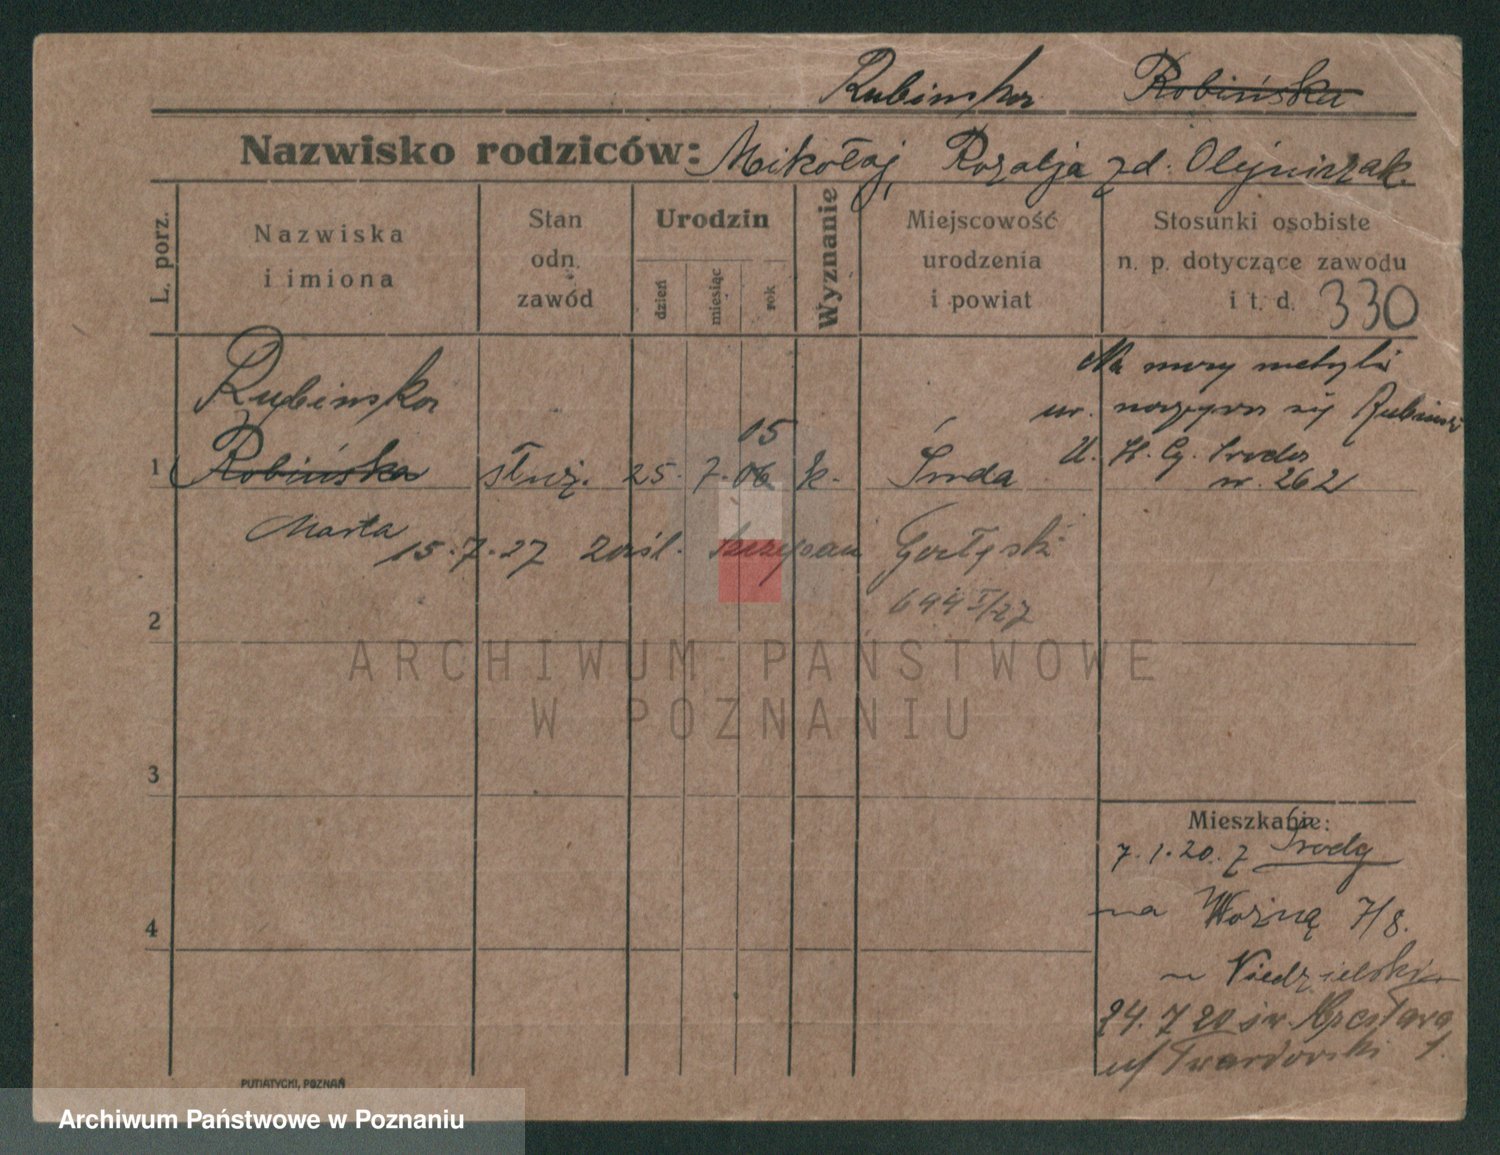 Rubinska Robińska
Nazwisko rodziców: Mikołaj, Rozalja zd. Olejniczak.
L. porz.
Nazwiska
i imiona
Stan
odn.
zawód
Urodzin
dzień
miesiąc
rok
Wyznanie
Miejscowość
urodzenia
i powiat
Stosunki osobiste
n. p. dotyczące zawodu
i t. d. 330
Rubinska
Na mocy metryki
ur. nazywa się Rubinska
U. St. Cy. Środa
nr. 262
05
1 Robińska służ. 25. 7. 06 k. Środa
Marta
15.7.27 Szczepan Gorłęski
644 I/27
2
3
4
ARCHIWUM PAŃSTWOWE
W POZNANIU
Mieszkanie:
7.1.20. z Środy
na Woźną 7/8.
Niedzielski
24. 7 20 św. Wacława
u/ Twardowski 1.
PUTIATYCKI, POZNAŃ
Archiwum Państwowe w Poznaniu